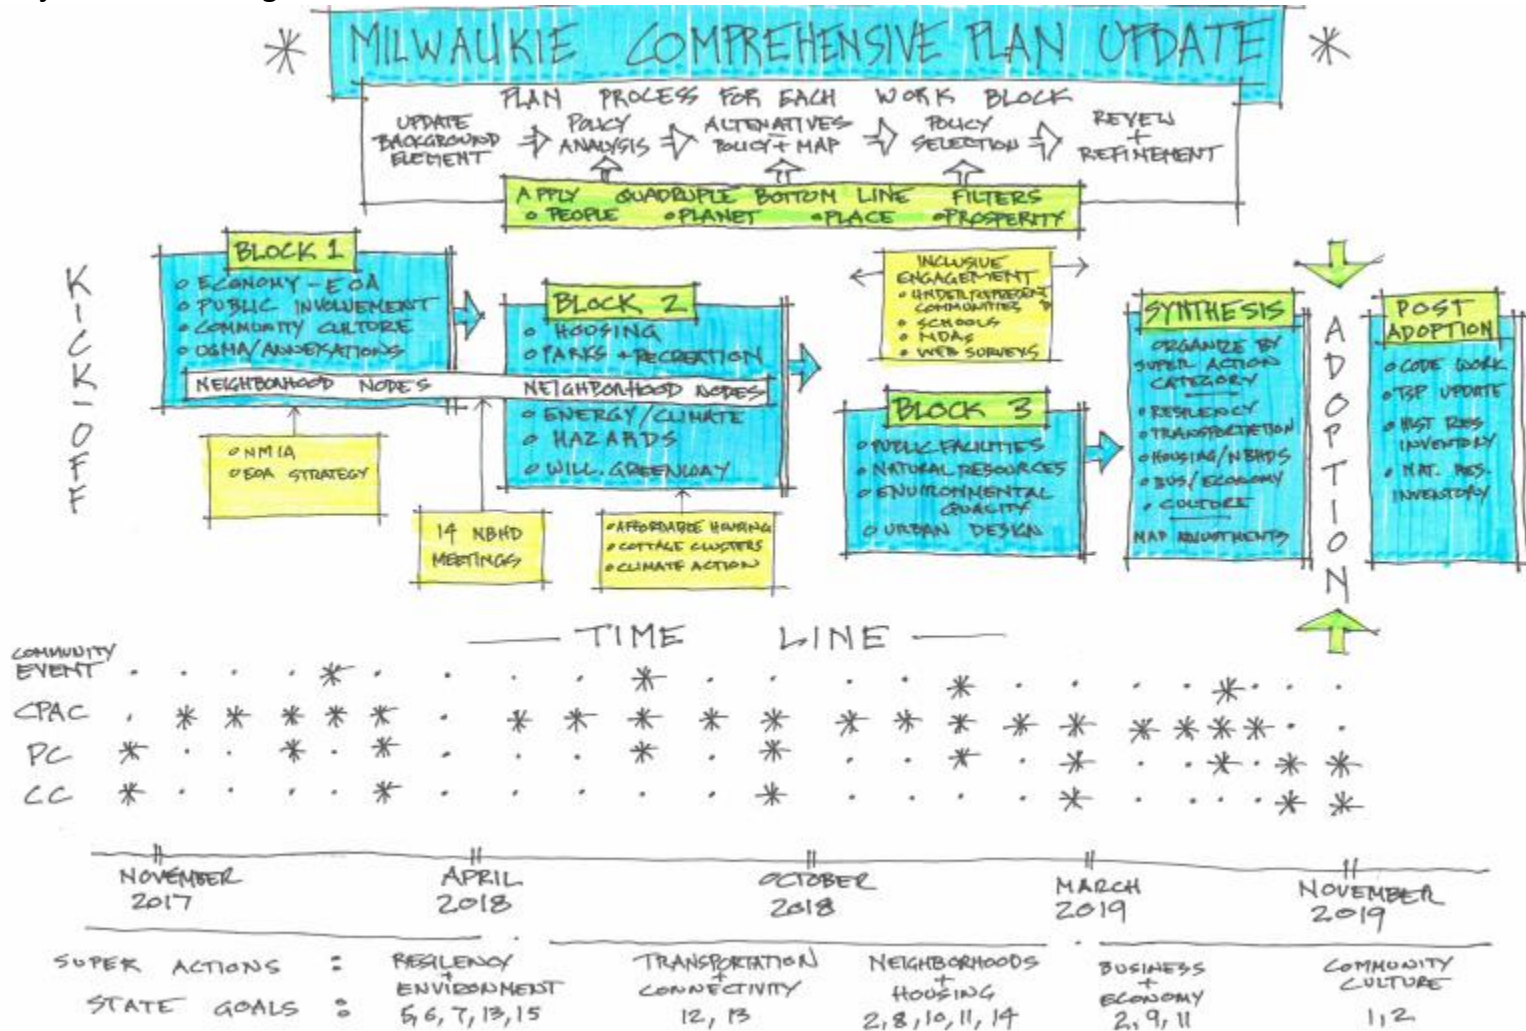 MILWAUKIE COMPREHENSIVE PLAN UPDATE
PLAN PROCESS FOR EACH WORK BLOCK
UPDATE
BACKGROUND
ELEMENT
POLICY
ANALYSIS
ALTENATIVES
POLICY + MAP
POLICY
SELECTION
REVIEW
+
REFINEMENT
APPLY QUADRUPLE BOTTOM LINE FILTERS
PEOPLE PLANET PLACE PROSPERITY
KICK-OFF
BLOCK 1
ECONOMY - EOA
PUBLIC INVOLVEMENT
COMMUNITY CULTURE
UGMA/ANNEXATIONS
NEIGHBORHOOD NODES
NMIA
EOA STRATEGY
14 NBHD
MEETINGS
BLOCK 2
HOUSING
PARKS + RECREATION
NEIGHBORHOOD NODES
ENERGY/CLIMATE
HAZARDS
WILL. GREENWAY
AFFORDABLE HOUSING
COTTAGE CLUSTERS
CLIMATE ACTION
INCLUSIVE
ENGAGEMENT
COMMUNITIES
SCHOOLS
NDAs
WEB SURVEYS
BLOCK 3
PUBLIC FACILITIES
NATURAL RESOURCES
ENVIRONMENTAL
QUALITY
URBAN DESIGN
SYNTHESIS
ORGANIZE BY
SUPER ACTION
CATEGORY
RESILENCY
TRANSPORTATION
HOUSING/NBHDS
BUS/ECONOMY
CULTURE
MAP ADJUSTMENTS
ADOPTION
POST
ADOPTION
CODE WORK
TSP UPDATE
HIST RES
INVENTORY
NAT. RES.
INVENTORY
TIME LINE
COMMUNITY
EVENT
CPAC
PC
CC
NOVEMBER
2017
APRIL
2018
OCTOBER
2018
MARCH
2019
NOVEMBER
2019
SUPER ACTIONS :
RESILENCY
+
ENVIRONMENT
TRANSPORTATION
+
CONNECTIVITY
NEIGHBORHOODS
+
HOUSING
BUSINESS
+
ECONOMY
COMMUNITY
CULTURE
STATE GOALS :
5, 6, 7, 13, 15
12, 13
2, 8, 10, 11, 14
2, 9, 11
1, 2